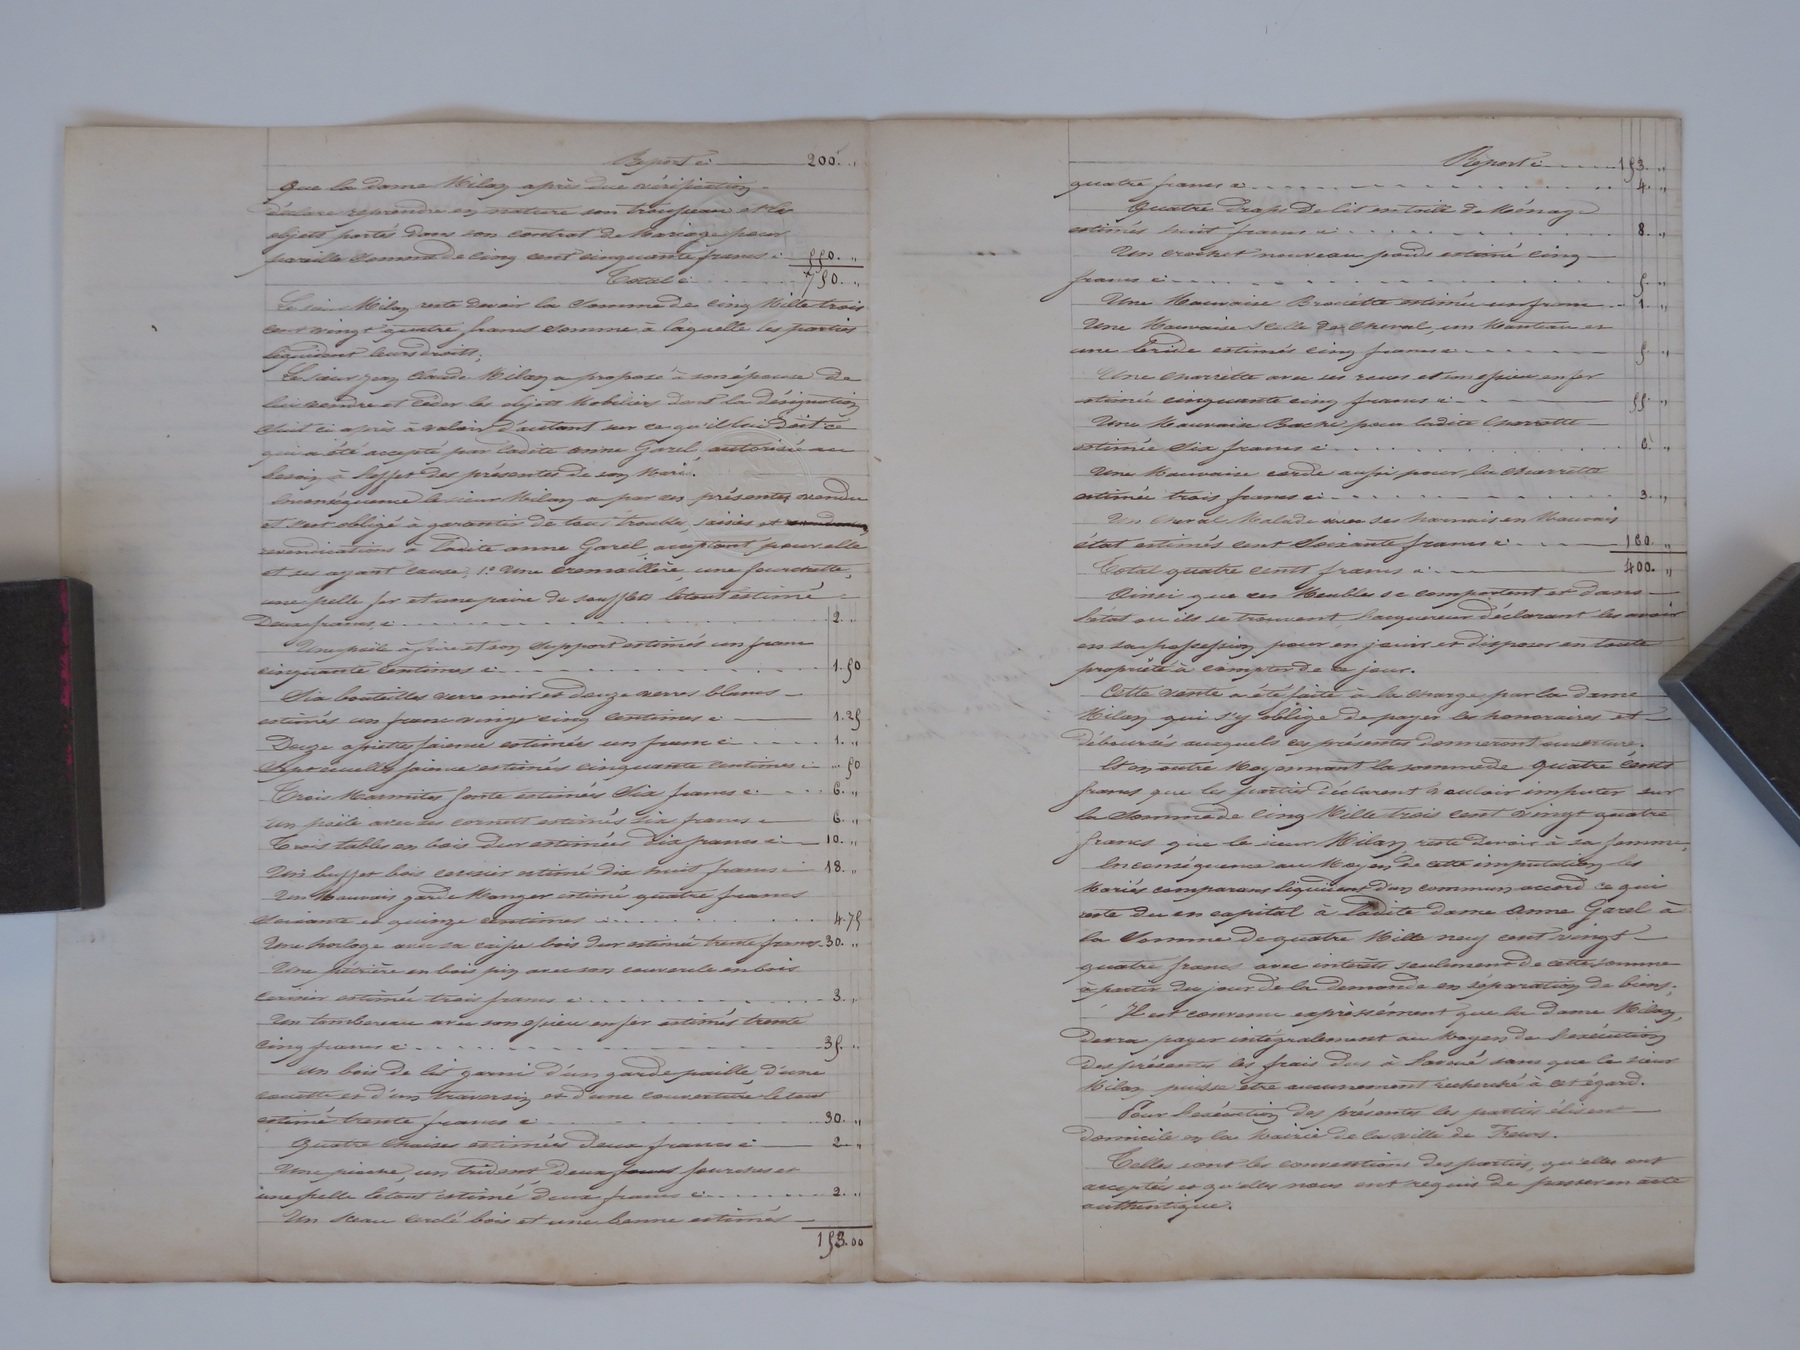 Report ci 200. "
que la dame Milan après due vérification
déclare reprendre en nature son trousseau et les
objets portés dans son contrat de Mariage pour
pareille Somme de Cinq cent cinquante francs ci 550. "
Total ci 750. "
Le sieur Milan reste devoir la Somme de Cinq Mille trois
cent vingt quatre francs somme à laquelle les parties
liquident leurs droits;
Le sieur Jean Claude Milan a proposé à son épouse de
lui vendre et céder les objets Mobiliers dont la désignation
suit ci après à valoir d'autant sur ce qu'il lui doit ce
qui a été accepté par ladite anne Garel, autorisée au
besoin à l'effet des présentes de son Mari.
En conséquence le sieur Milan a par ces présentes vendu
et s'est obligé à garantir de tous troubles, saisies et
revendications à ladite anne Garel, acceptant pour elle
et ses ayant cause; 1° Une cremaillère, une fourchette,
une pelle fer et une paire de soufflets le tout estimé
Deux francs ci 2. "
Une poële à frire et son support estimés un franc
cinquante centimes ci 1.50
Six bouteilles verre noir et douze verres blancs
estimés un franc vingt cinq centimes ci 1.25
Douze assiettes faience estimées un franc ci 1. "
Sept ecuelles faience estimés cinquante centimes ci " 50
Trois Marmites fonte estimées Six francs ci 6. "
un poële avec ses cornets estimés six francs ci 6. "
Trois tables en bois dur estimées dix francs ci 10. "
Un buffet bois cerisier estimé dix huit francs ci 18. "
Un Mauvais garde Manger estimé quatre francs
Soixante et quinze centimes ci 4.75
Une horloge avec sa caisse bois dur estimée trente francs 30. "
Une pétrière en bois pin avec son couvercle en bois
cerisier estimée trois francs ci 3. "
Un tombereau avec son essieu en fer estimés trente
cinq francs ci 35. "
Un bois de lit garni d'un garde paille d'une
couette et d'un traversin et d'une couverture le tout
estimé trente francs ci 30. "
Quatre chaises estimées deux francs ci 2. "
Une pioche, un trident deux fourches et
une pelle le tout estimé deux francs ci 2. "
Un Seau cerclé bois et une benne estimés
153.00
Report ci 153. "
quatre francs ci 4. "
Quatre Draps de lit en toile de Ménage
estimés huit francs ci 8. "
Un crochet nouveau poids estimé cinq
francs ci 5. "
Une Mauvaise Brouette estimée un franc 1. "
Une Mauvaise Selle de cheval, un Manteau et
une bride estimés cinq francs ci 5. "
Une charrette avec ses roues et son essieu en fer
estimée cinquante cinq francs ci 55. "
Une Mauvaise Bache pour ladite charrette
estimée Six francs ci 6. "
Une Mauvaise corde aussi pour la charrette
estimée trois francs ci 3. "
Un cheval Malade avec ses harnais en Mauvais
état estimés cent Soixante francs ci 160. "
Total quatre cents francs ci 400. "
Ainsi que ces Meubles se comportent et dans
l'état où ils se trouvent l'acquereur déclarant les avoir
en sa possession pour en jouir et disposer en toute
propriété à compter de ce jour.
Cette vente a été faite à la charge par la dame
Milan qui s'y oblige de payer les honoraires et
déboursés auxquels ces présentes donneront ouverture.
Et en outre Moyennant la somme de quatre cents
francs que les parties déclarent vouloir imputer sur
la Somme de Cinq Mille trois cent vingt quatre
francs que le sieur Milan reste devoir à sa femme,
En conséquence au Moyen de cette imputation les
Mariés comparans liquident d'un commun accord ce qui
reste du en capital à ladite dame Anne Garel à
la Somme de quatre Mille neuf cent vingt
quatre francs avec intérêts seulement de cette somme
à partir du jour de la demande en séparation de biens.
Il est convenu expressément que la dame Milan,
devra payer intégralement au Moyen de l'exécution
des présentes les frais dus à l'avoué sans que le sieur
Milan puisse être aucunement recherché à cet égard.
Pour l'exécution des présentes les parties élisent
domicile en la Mairie de la ville de Feurs.
Telles sont les conventions des parties, qu'elles ont
acceptés et qu'elles nous ont requis de passer en acte
authentique.